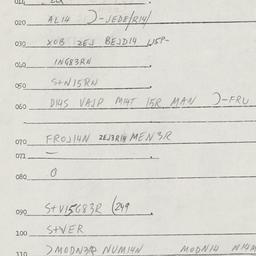 020 AL14 )-JEDE/R14/
030 XOB ZEJ BEJD14 15P-
040 ING83RN
050 S+N15RN
060 D14S VAJP M14T 15R MAN )-FRU
070 FROJ14N 2EJ3R14 MEN3R
071 —
080 0
090 S+V15G83R (249
100 S+VER
110 NUM14N MODN14